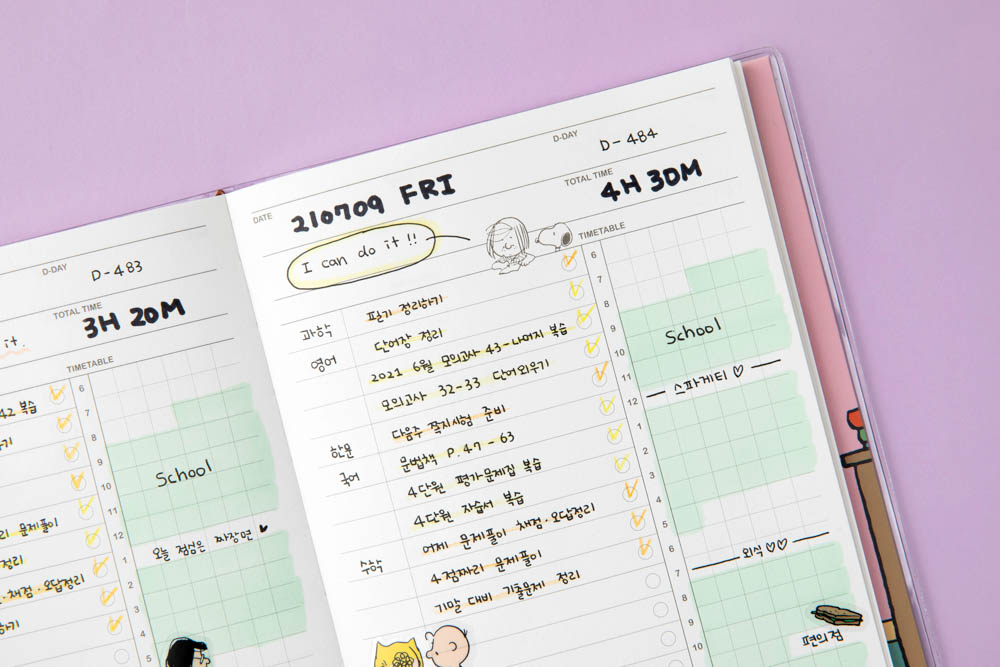 D-DAY D-483
TOTAL TIME 3H 20M
it.
TIMETABLE
42 복습
문제풀이
정리
채점·오답정리
6
7
8
9
10
11
12
1
2
3
4
5
School
오늘 점심은 짜장면 ♥
DATE 210709 FRI
D-DAY D-484
TOTAL TIME 4H 30M
I can do it!!
TIMETABLE
과학 필기 정리하기
영어 단어장 정리
2021 6월 모의고사 43-나머지 복습
모의고사 32-33 단어외우기
한문 다음주 쪽지시험 준비
국어 문법책 P.47-63
4단원 평가문제집 복습
4단원 자습서 복습
수학 어제 문제풀이 채점·오답정리
4점짜리 문제풀이
기말 대비 기출문제 정리
6
7
8
9
10
11
12
1
2
3
4
5
6
7
8
9
10
School
스파게티 ♡
외식 ♡♡
편의점